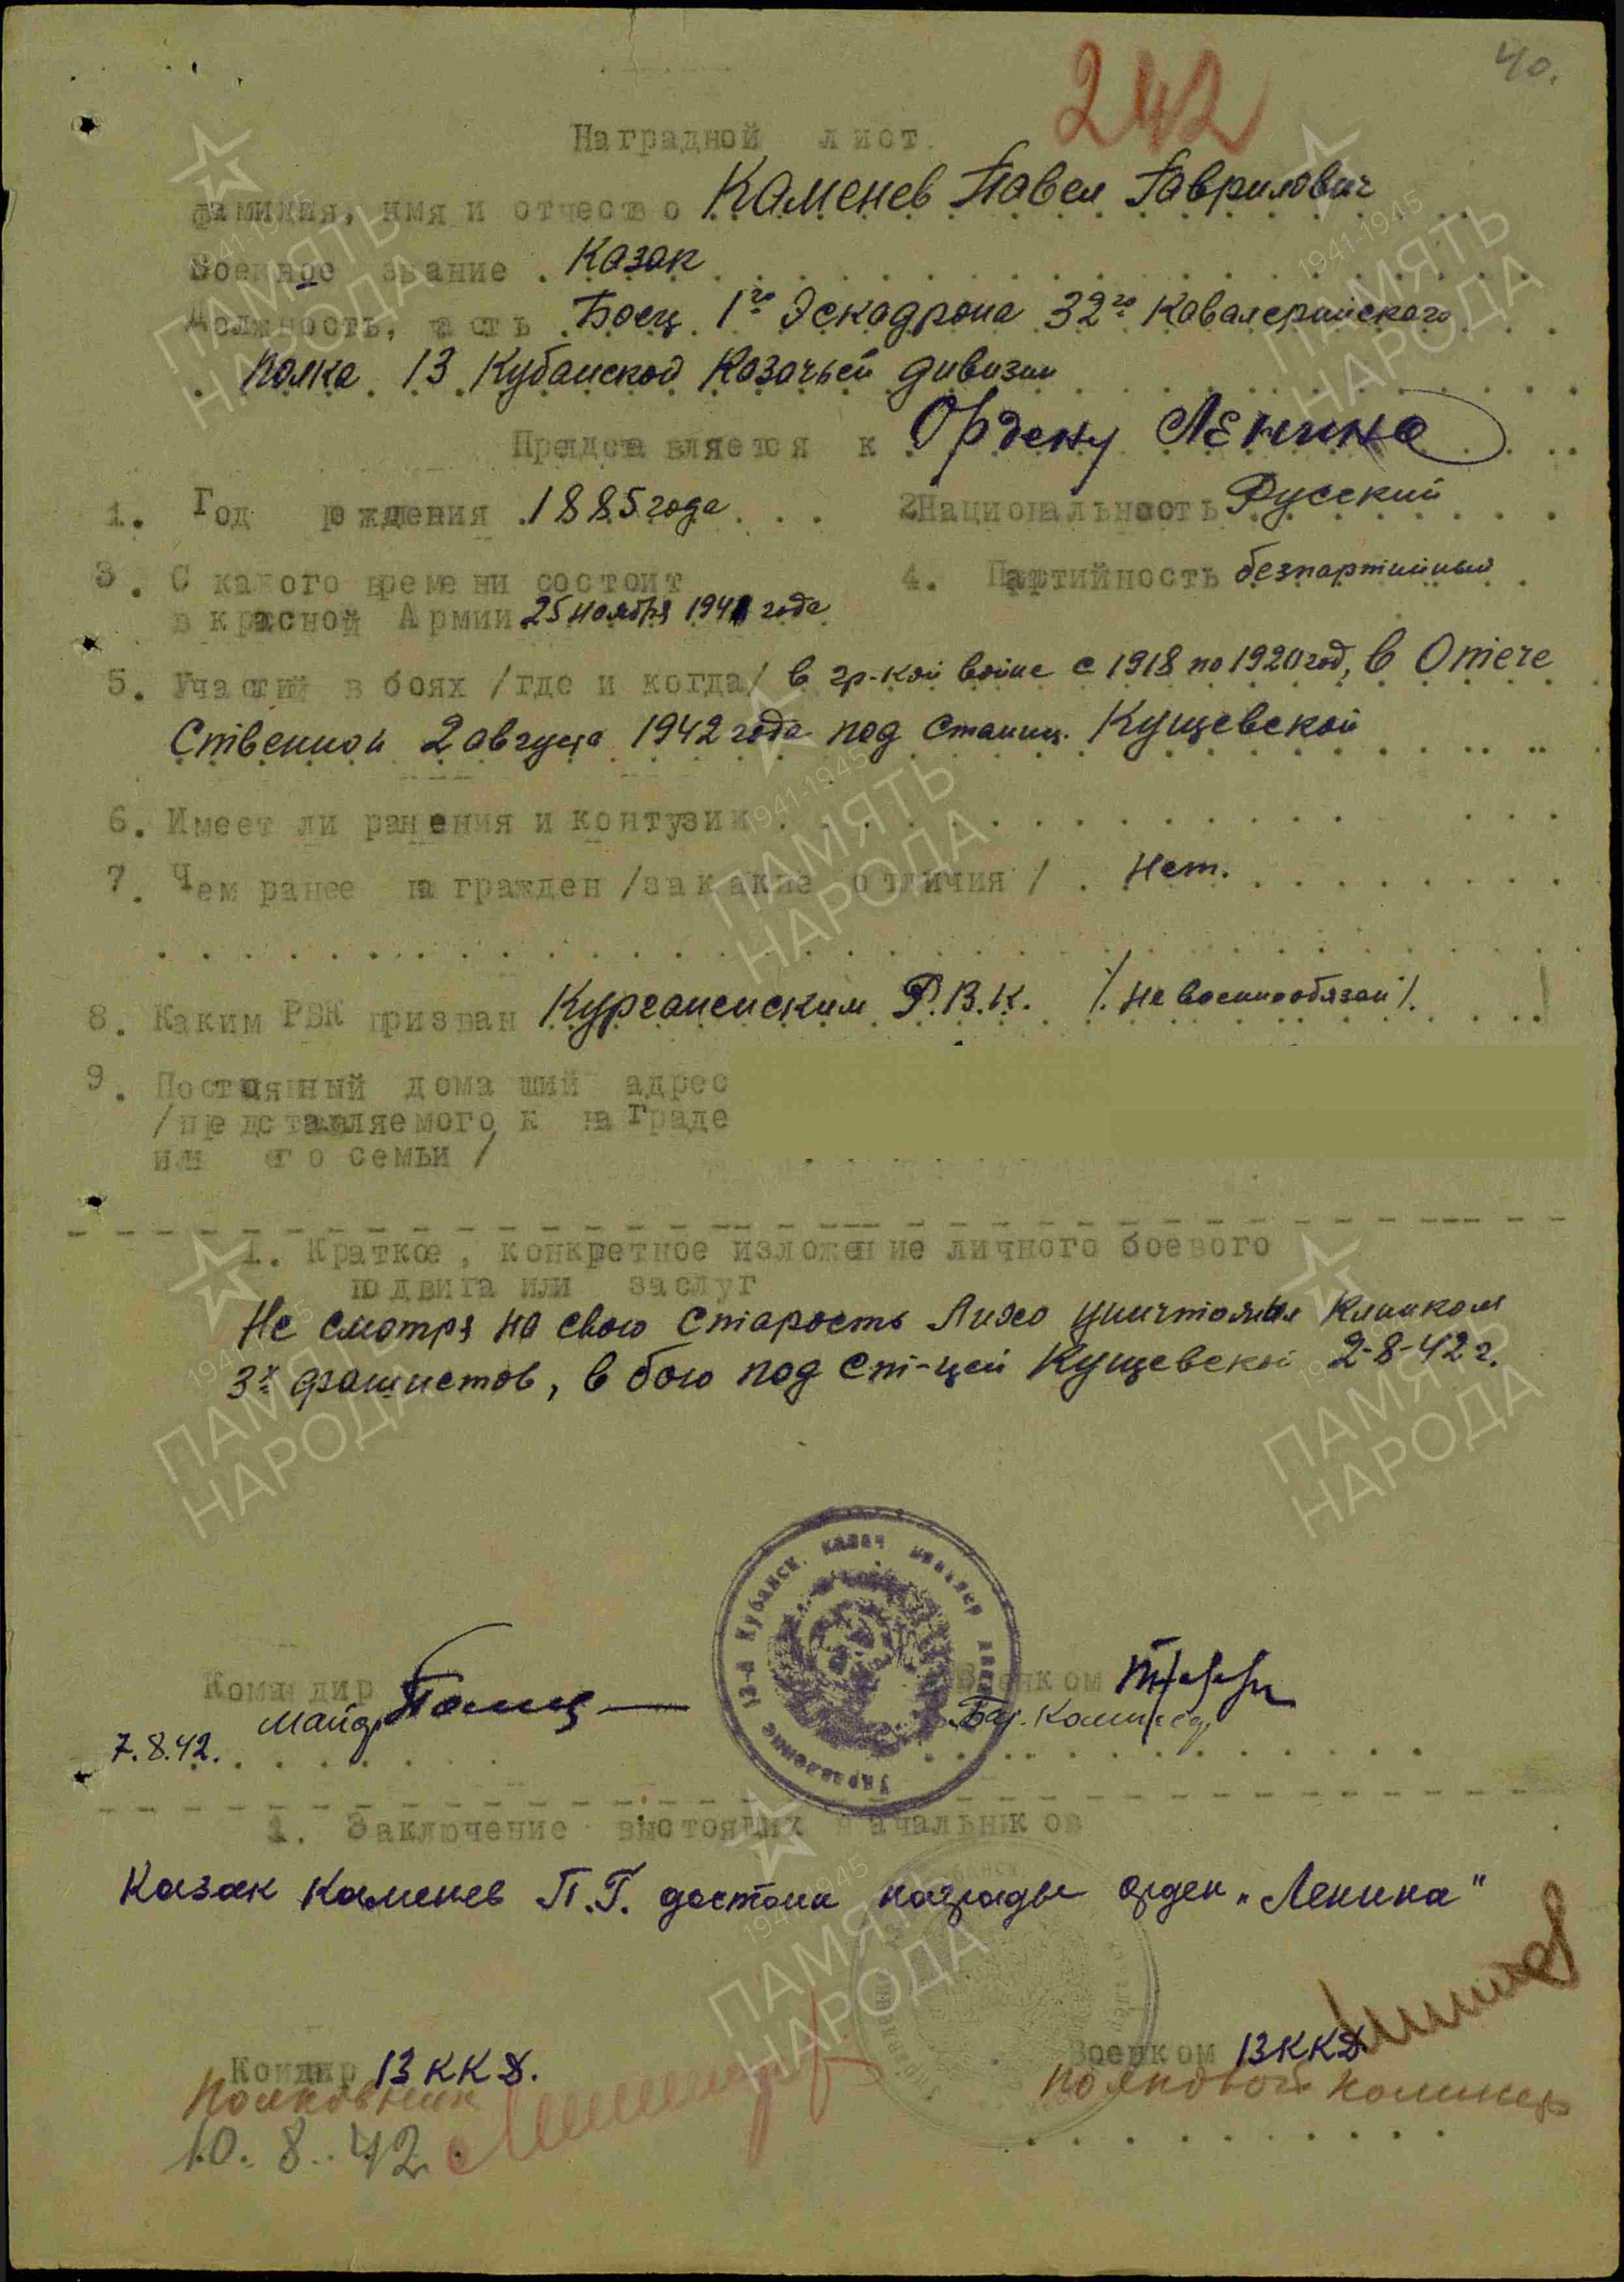 40.
242
Наградной лист.
фамилия, имя и отчество Каменев Павел Гаврилович
Военное звание Казак
Должность, часть Боец 1го Эскадрона 32го Кавалерийского
полка 13 Кубанской Козачьей дивизии
Представляется к Ордену Ленина
1. Год рождения 1885 года 2 Национальность Русский
3. С какого времени состоит 4. Партийность безпартийный
в красной Армии 25 ноября 1941 года
5. Участий в боях /где и когда/ в гр-кой войне с 1918 по 1920 год, в Отече
ственной 2 августа 1942 года под станиц. Кущевской
6. Имеет ли ранения и контузии
7. Чем ранее награжден /за какие отличия/ Нет.
8. Каким РВК призван Курганенским Р.В.К. /. Не военнообязан/.
9. Постоянный домаший адрес
/представляемого к награде
или его семьи/
1. Краткое, конкретное изложение личного боевого
подвига или заслуг
Не смотря на свою старость Лихо уничтожил Клинком
3х фашистов, в бою под ст-цей Кущевской 2-8-42 г.
Управление 13-й Кубанск. казач кавалер
Командир Военком
майор Бат. Комиссар
7.8.42.
1. Заключение вышестоящих начальников
Казак Каменев П.Г. достоин награды орден "Ленина"
Комдир 13 ККД. Военком 13 ККД
Полковник полковой комиссар
10.8.42
1941-1945
ПАМЯТЬ
НАРОДА